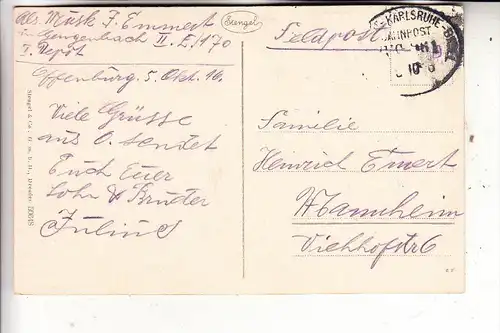 Abs. Musk. J. Emmert
in Gengenbach II. E./170
I. Depot
Offenburg 5. Okt. 16.
Viele Grüsse
aus O. sendet
Euch Euer
Sohn & Bruder
Julius
Stengel
Feldpost
KARLSRUHE
BAHNPOST
Familie
Heinrich Emert
Mannheim
Viehhofstr 6
Stengel & Co., G. m. b. H., Dresden